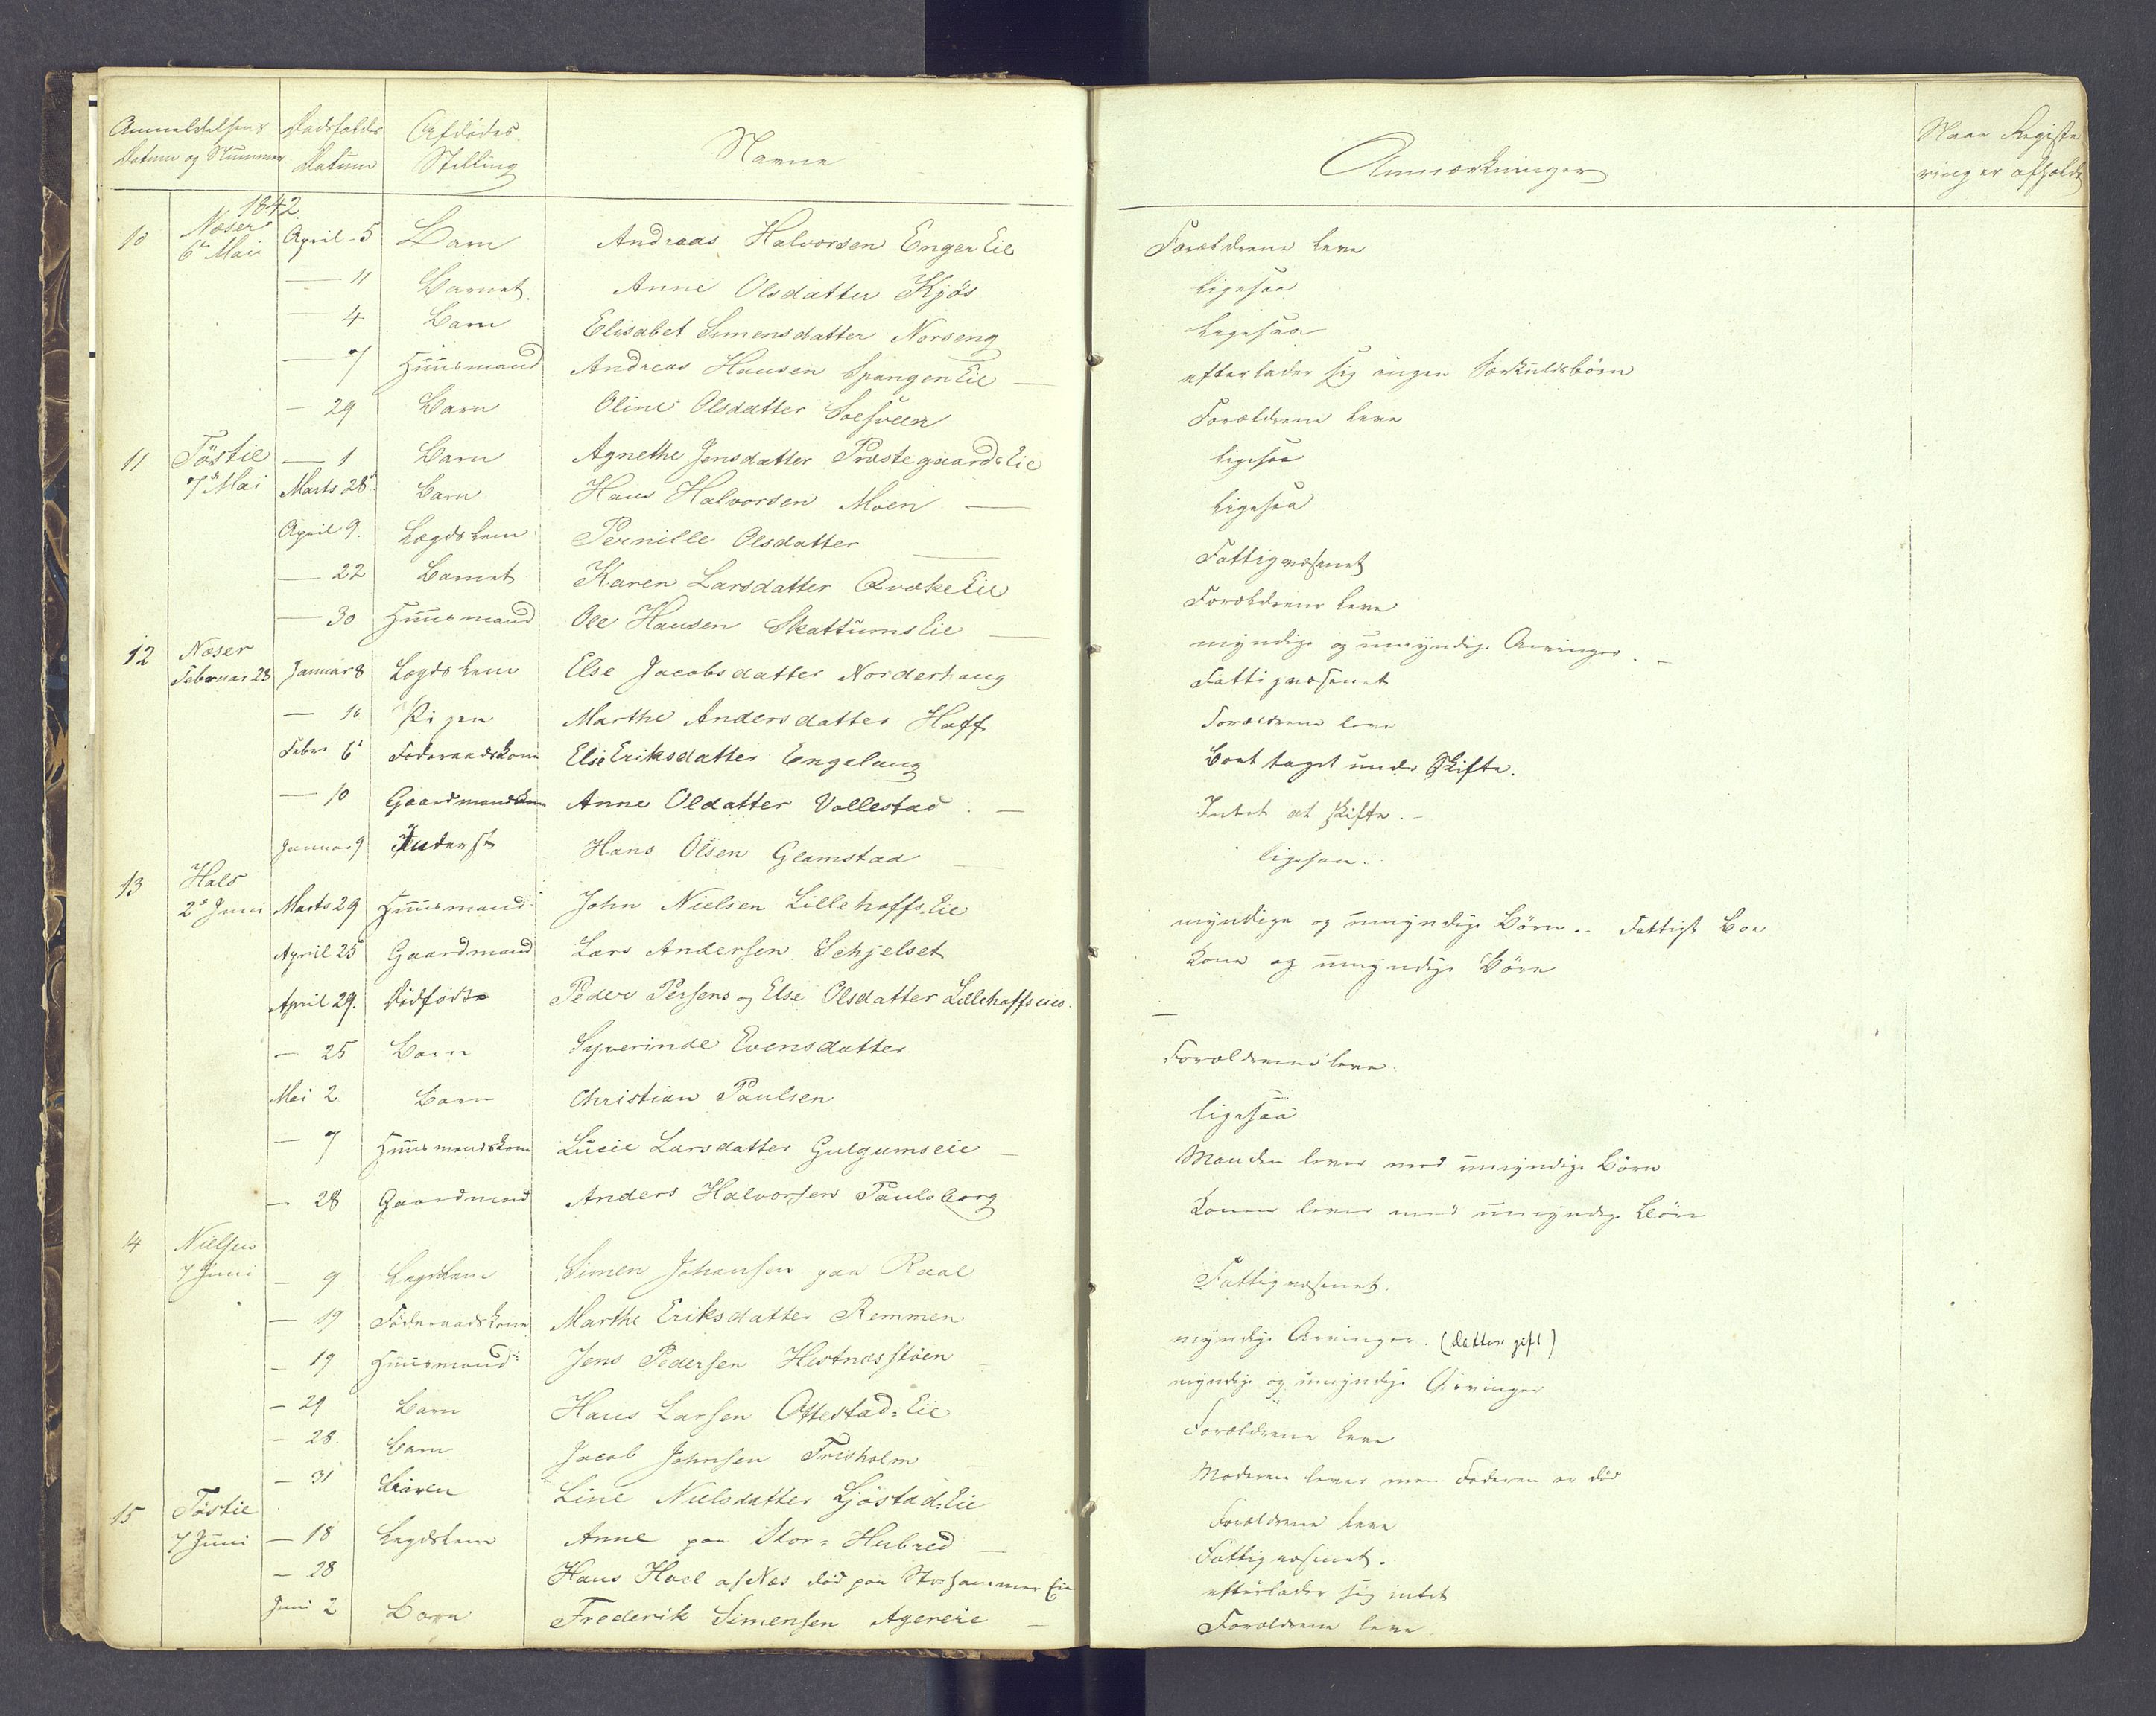 Anmeldelsens Datum og Nummer | Dødsfaldets Datum | Afdødes Stilling | Navne | Anmærkninger | Naar Registrering er afholdt
1842
10 | Næser 6te Mai | April 5 | Barn | Andreas Halvorsen Enger Eie | Forældrene leve
— 11 | Barnet | Anne Olsdatter Kjös | ligesaa
— 4 | Barn | Elisabet Simensdatter Norseng | ligesaa
— 7 | Huusmand | Andreas Hansen Spangen Eie — | efterlader sig ingen Særkuldsbörn
— 29 | Barn | Oline Olsdatter | Forældrene leve
11 | Töstie 7de Mai | — 1 | Barn | Agnethe Jensdatter Præstegaards Eie | ligesaa
Marts 28 | Barn | Hans Halvorsen Moen — | ligesaa
April 9. | Lægdslem | Pernille Olsdatter — | Fattigvæsenet
— 22 | Barnet | Karen Larsdatter Qvække Eie | Forældrene leve
— 30 | Huusmand | Ole Hansen Skattums Eie — | myndige og umyndige Arvinger. —
12 | Næser Februar 28 | Januar 8 | Lægdslem | Else Jacobsdatter Norderhaug | Fattigvæsenet
— 16 | Pigen | Marthe Andersdatter Hoff | Forældrene leve
Febr 6 | Föderaadskone | Else Eriksdatter Engelaug | Boet taget under Skifte.
— 10 | Gaardmandskone | Anne Oldatter Vollestad. — | Intet at skifte. —
Januar 9 | Inderst | Hans Olsen Glamstad — | ligesaa.
13 | Hals 2de Juni | Marts 29 | Huusmand | John Nielsen Lillehoffs. Eie | myndige og umyndige Börn. — Fattigt Boe
April 25 | Gaardmand | Lars Andersen Schjelset | Kone og umyndige Börn
April 29. | Dödfödte | Peder Persens og Else Olsdatter Lillehoffseie. | —
— 25 | Barn | Syverinde Evensdatter | Forældrene leve.
Mai 2 | Barn | Christian Paulsen | ligesaa
— 7 | Huusmandskone | Lucie Larsdatter Gulgumseie — | Manden lever med umyndige Börn
— 28 | Gaardmand | Anders Halvorsen Paulsborg | Konen lever med umyndige Börn
14 | Nielsen 7 Juni | — 9 | Lægdslem | Simen Johansen paa Raal | Fattigvæsenet.
— 19 | Föderaadskone | Marthe Eriksdatter Remmen | myndige Arvinger. (datter gift)
— 19 | Huusmand | Jens Pedersen Hestnæsstöen — | myndige og umyndige Arvinger
— 29 | Barn | Hans Larsen Ottestad = Eie | Forældrene leve
— 28. | Barn | Jacob Johnsen Frisholm — | Moderen lever men Faderen er död
— 31 | | Line Nielsdatter Ljöstad = Eie | Forældrene leve
15 | Töstie 7 Juni | — 18 | Lægdslem | Anne paa Stor = Hubred — | Fattigvæsenet.
— 28 | Hans Hoel af Næs död paa Storhammer Eie | efterlader sig intet
Juni 2 | Barn | Frederik Simensen Agereie — | Forældrene leve.